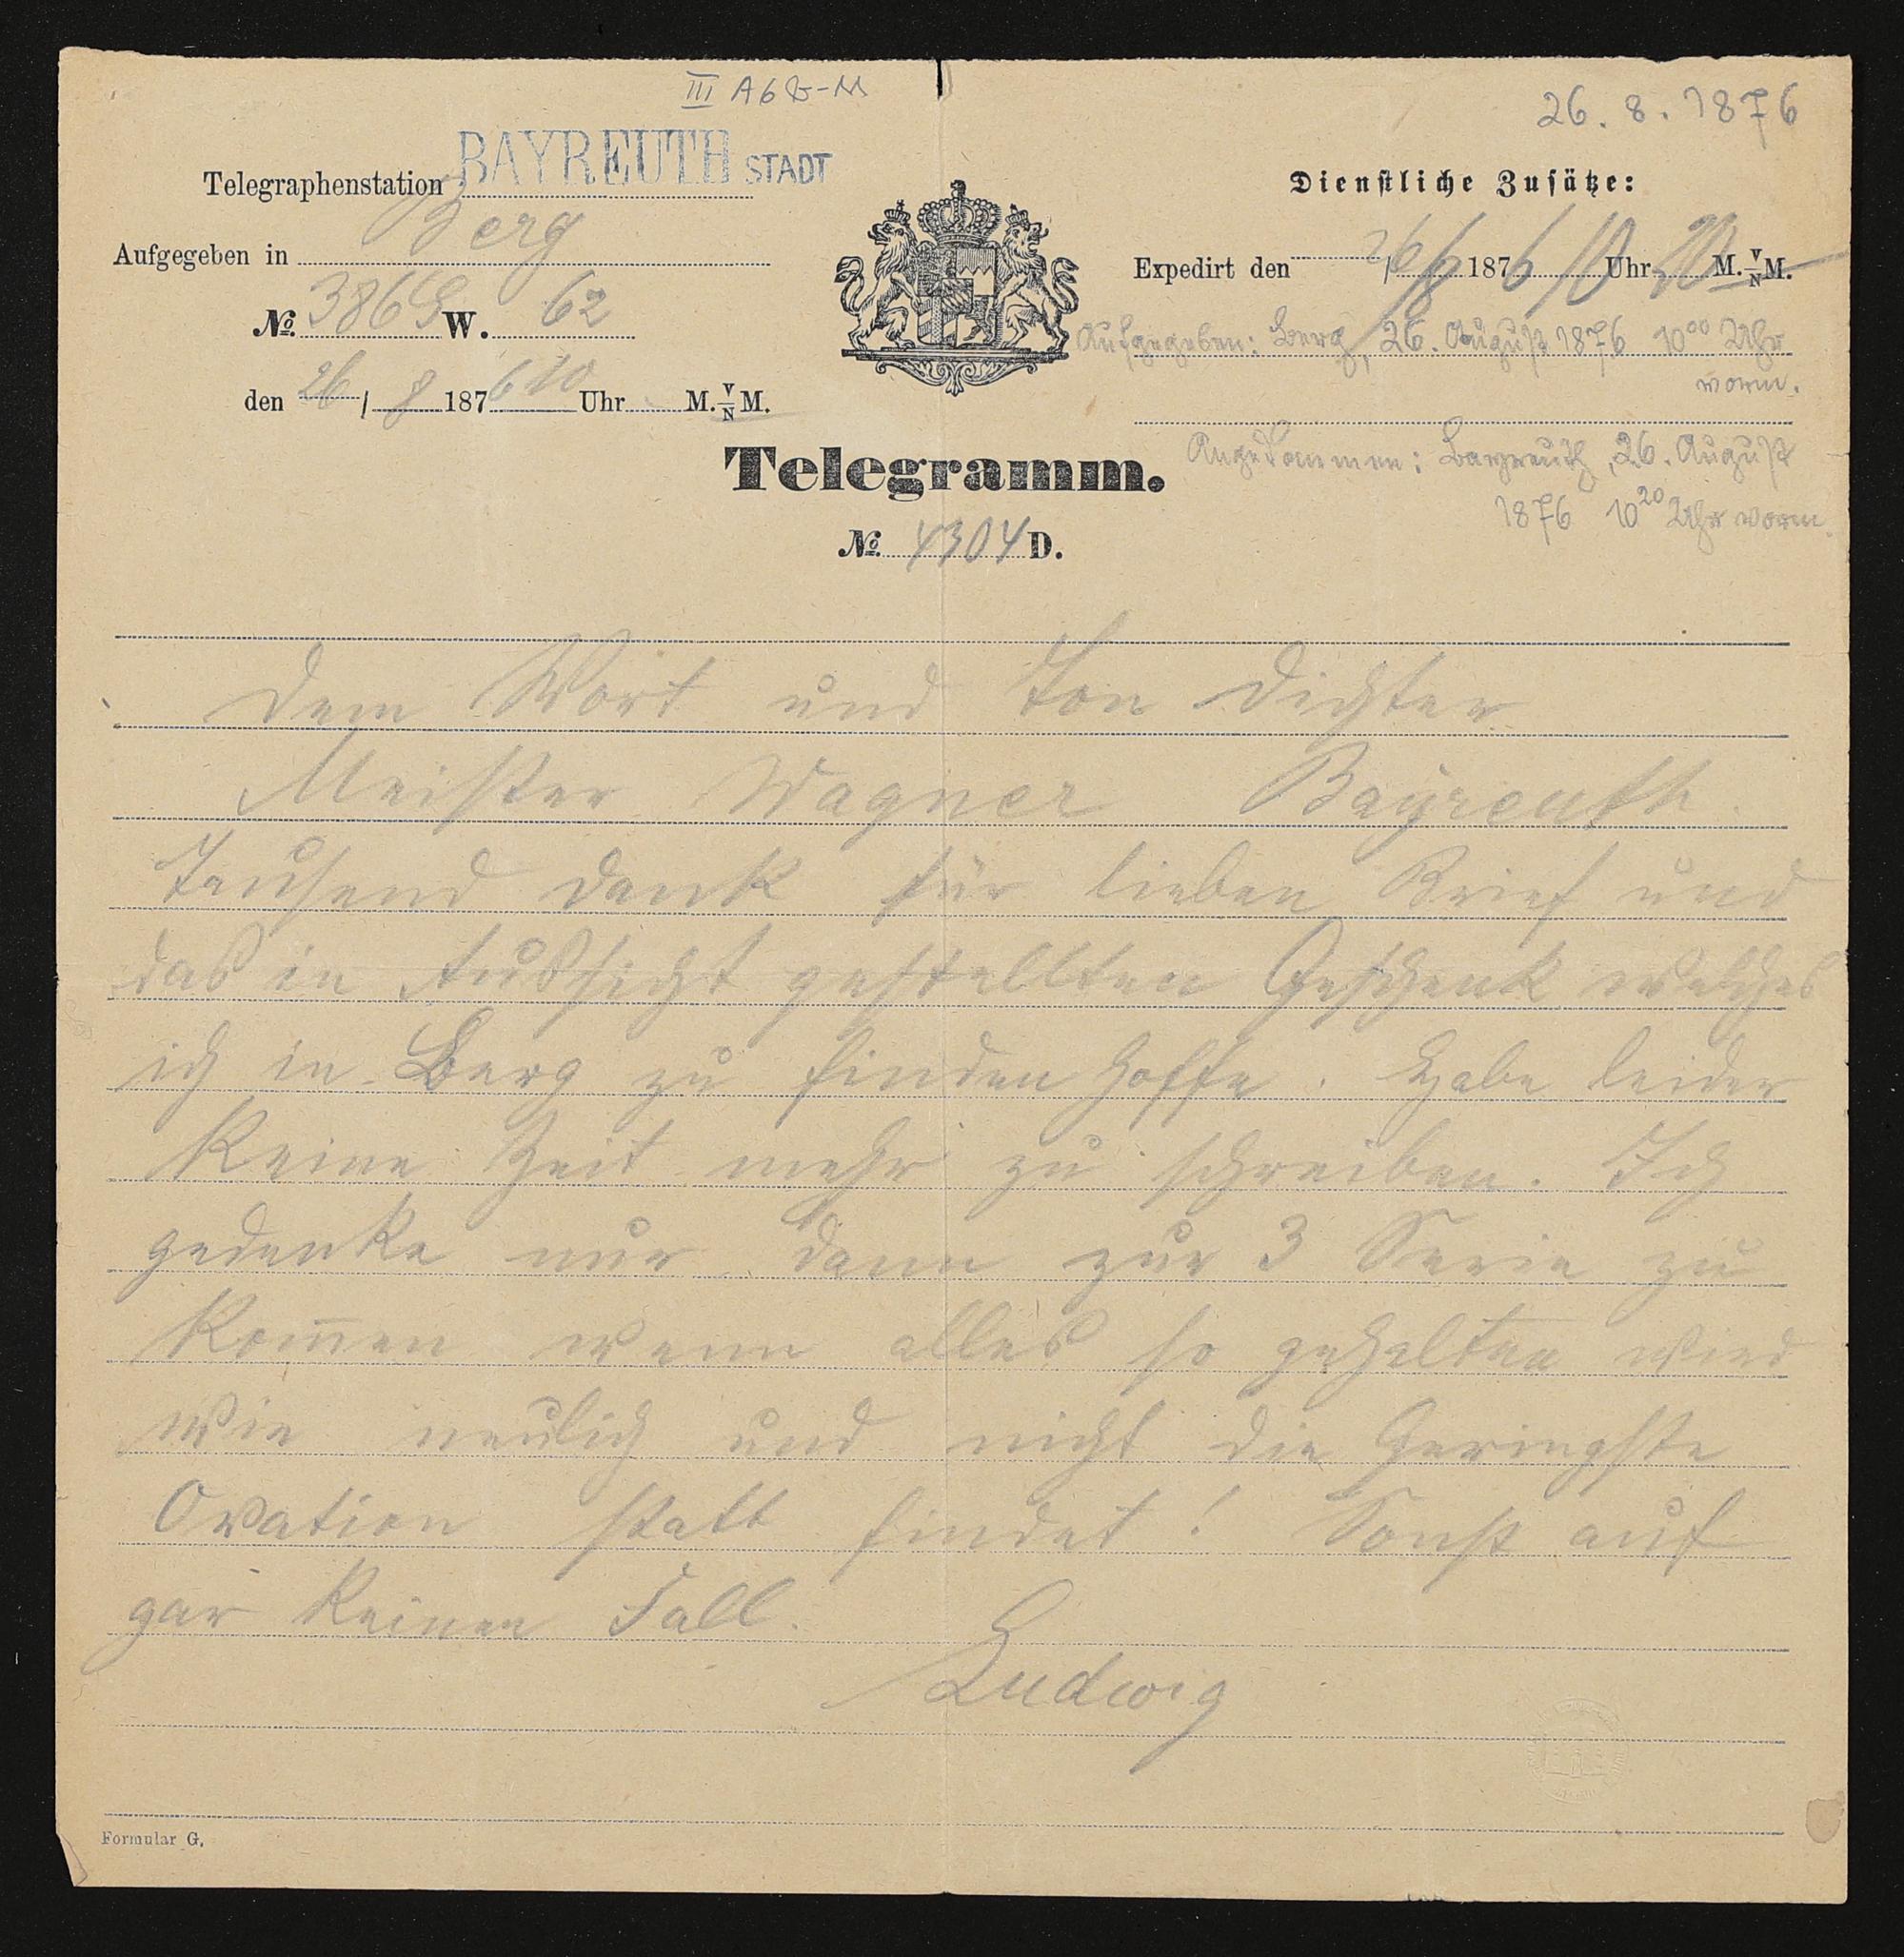 III A 6 b-14
26. 8. 1876
Telegraphenstation BAYREUTH STADT
Dienstliche Zusätze:
Aufgegeben in Berg
Expedirt den 26/8 1876 10 Uhr 20 M. V/N M.
№ 3869 W. 62
Aufgegeben: Berg, 26. August 1876 10⁰⁰ Uhr
vorm.
den 26/8 1876 10 Uhr M. V/N M.
Telegramm.
Angekommen: Bayreuth, 26. August
1876 10²⁰ Uhr vorm.
№ 4304 D.
Dem Wort und Ton Dichter
Meister Wagner Bayreuth.
Tausend Dank für lieben Brief und
das in Aussicht gestellten Geschenk welches
ich in Berg zu finden hoffe. Habe leider
keine Zeit mehr zu schreiben. Ich
gedenke nur dann zur 3 Serie zu
kom̄en wenn alles so gehalten wird
wie neulich und nicht die Geringste
Ovation statt findet! Sonst auf
gar keinen Fall.
Ludwig
Formular G.